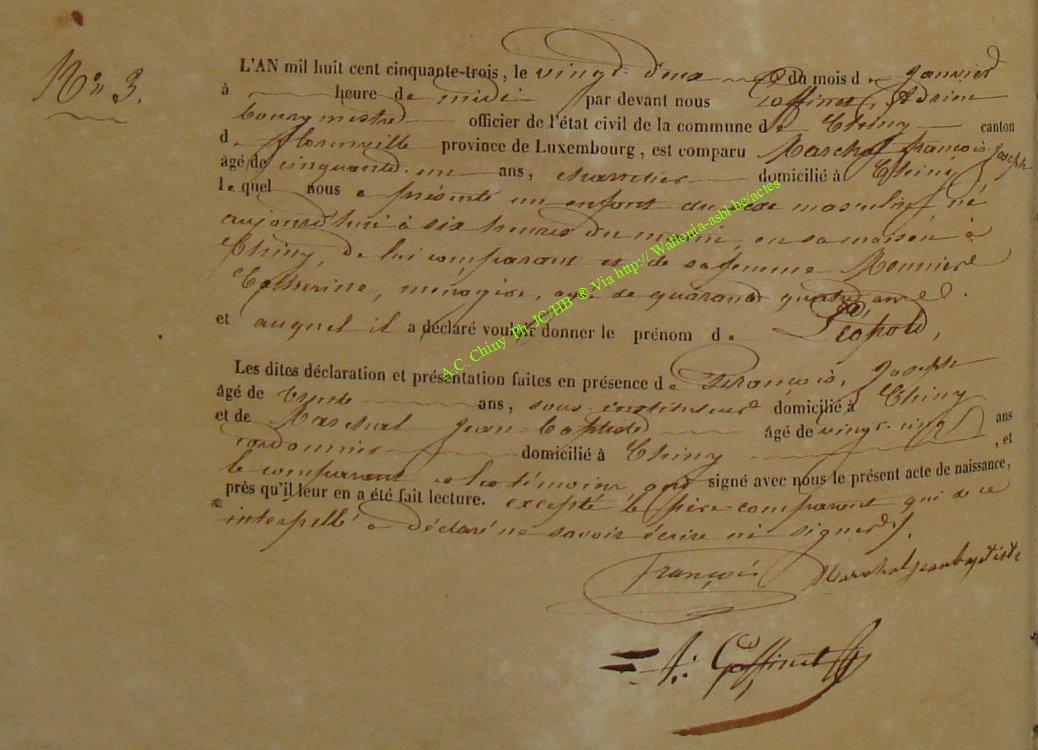 N° 3.
L'AN mil huit cent cinquante-trois, le vingt deux du mois de Janvier
à heure de midi par devant nous Goffinet, Adrien
bourgmestre officier de l'état civil de la commune de Chiny canton
de florenville province de Luxembourg, est comparu Maréchal françois Joseph
âgé de cinquante un ans, charretier domicilié à Chiny
lequel nous a présenté un enfant du sexe masculin, né
aujourd'hui à six heures du matin en sa maison à
Chiny, de lui comparant et de sa femme Mounier
Catherine, ménagère, agée de quarante quatre ans.
et auquel il a déclaré vouloir donner le prénom de Léopold,
Les dites déclaration et présentation faites en présence de François, Joseph
âgé de trente ans, sous instituteur domicilié à Chiny
et de Maréchal Jean Baptiste âgé de vingt cinq ans
cordonnier domicilié à Chiny, et
le comparant et les témoins ont signé avec nous le présent acte de naissance,
près qu'il leur en a été fait lecture. excepté le père comparant qui de ce
interpellé a déclaré ne savoir écrire ni signer.
François Marechal jean baptiste
A. Goffinet
A.C. Chiny Ph.JC/HB ® Via http://Wallonia-asbl.be/actes